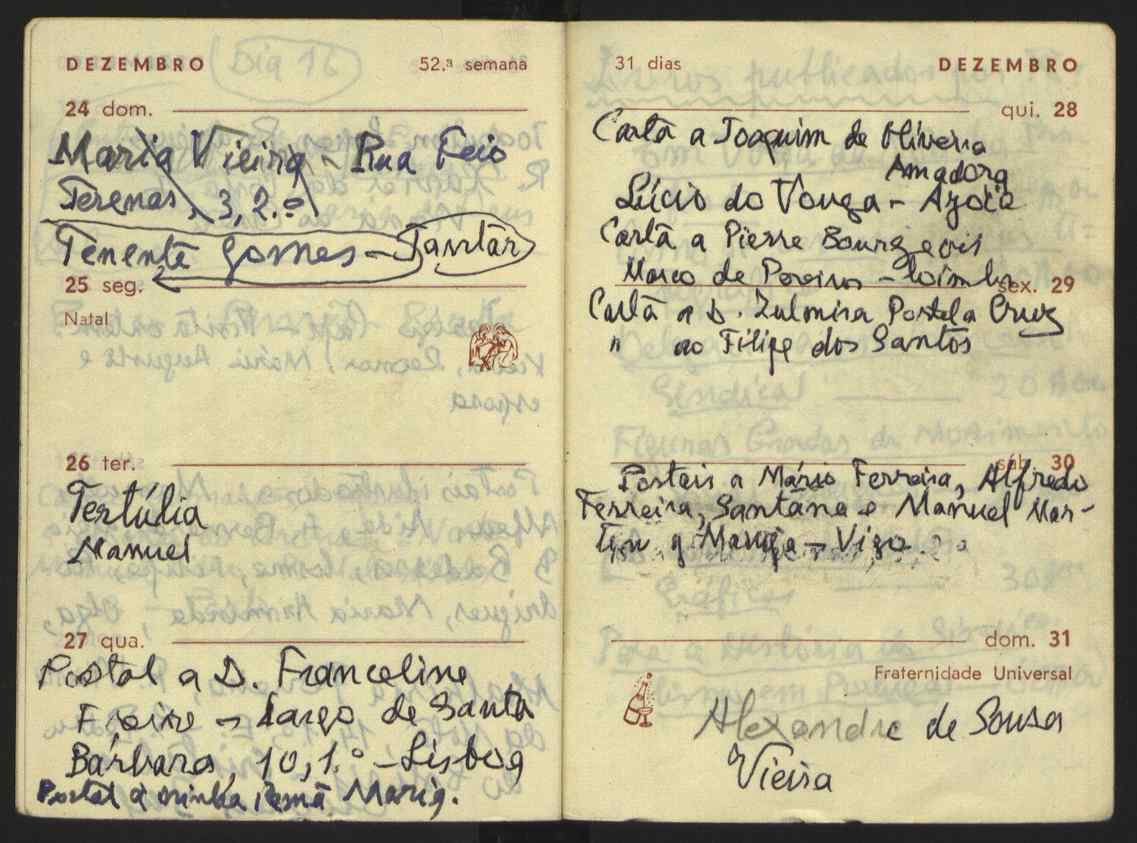 DEZEMBRO
Dia 16
52.ª semana
24 dom.
Maria Vieira - Rua Feio
Terenas, 3, 2.º
Tenente Gomes - Jantar
25 seg.
Natal
26 ter.
Tertúlia
Manuel
27 qua.
Postal a D. Franceline
Freire - Largo de Santa
Bárbara, 10, 1.º - Lisboa
Postal a minha irmã Maria.
31 dias
DEZEMBRO
qui. 28
Carta a Joaquim de Oliveira
Amadora
Lúcio do Vouga - Azoia
Carta a Pierre Bourgeois
Marco de - Coimbra
sex. 29
Carta a D. Zulmira Portela Cruz
" ao Filipe dos Santos
sáb. 30
Postais a Mário Ferreira, Alfredo
Ferreira, Santana e Manuel Mar-
Vigo
dom. 31
Fraternidade Universal
Alexandre de Sousa
Vieira